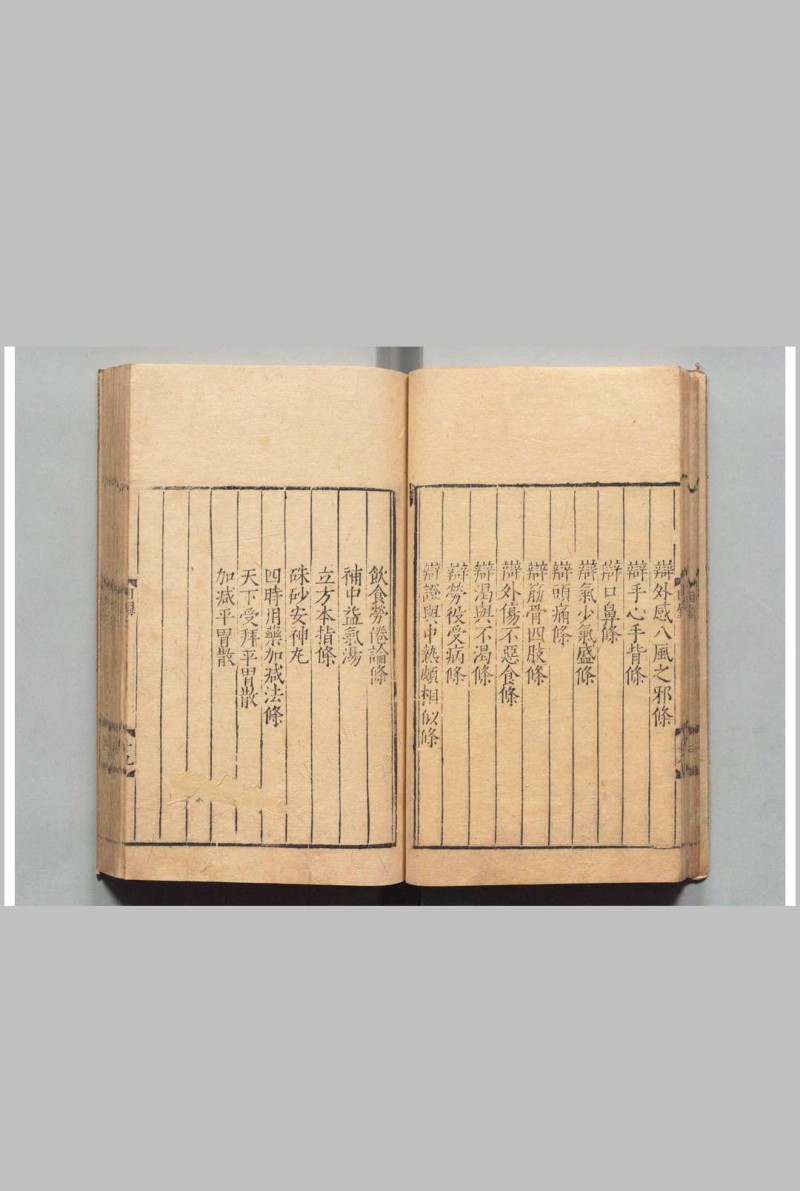 辯外感八風之邪條
辯手心手背條
辯口鼻條
辯氣少氣盛條
辯頭痛條
辯筋骨四肢條
辯外傷不惡食條
辯渴與不渴條
辯勞役受病條
辯證與中熱頗相似條
飲食勞倦論條
補中益氣湯
立方本指條
硃砂安神丸
四時用藥加减法條
天下受拜平胃散
加减平胃散
目錄